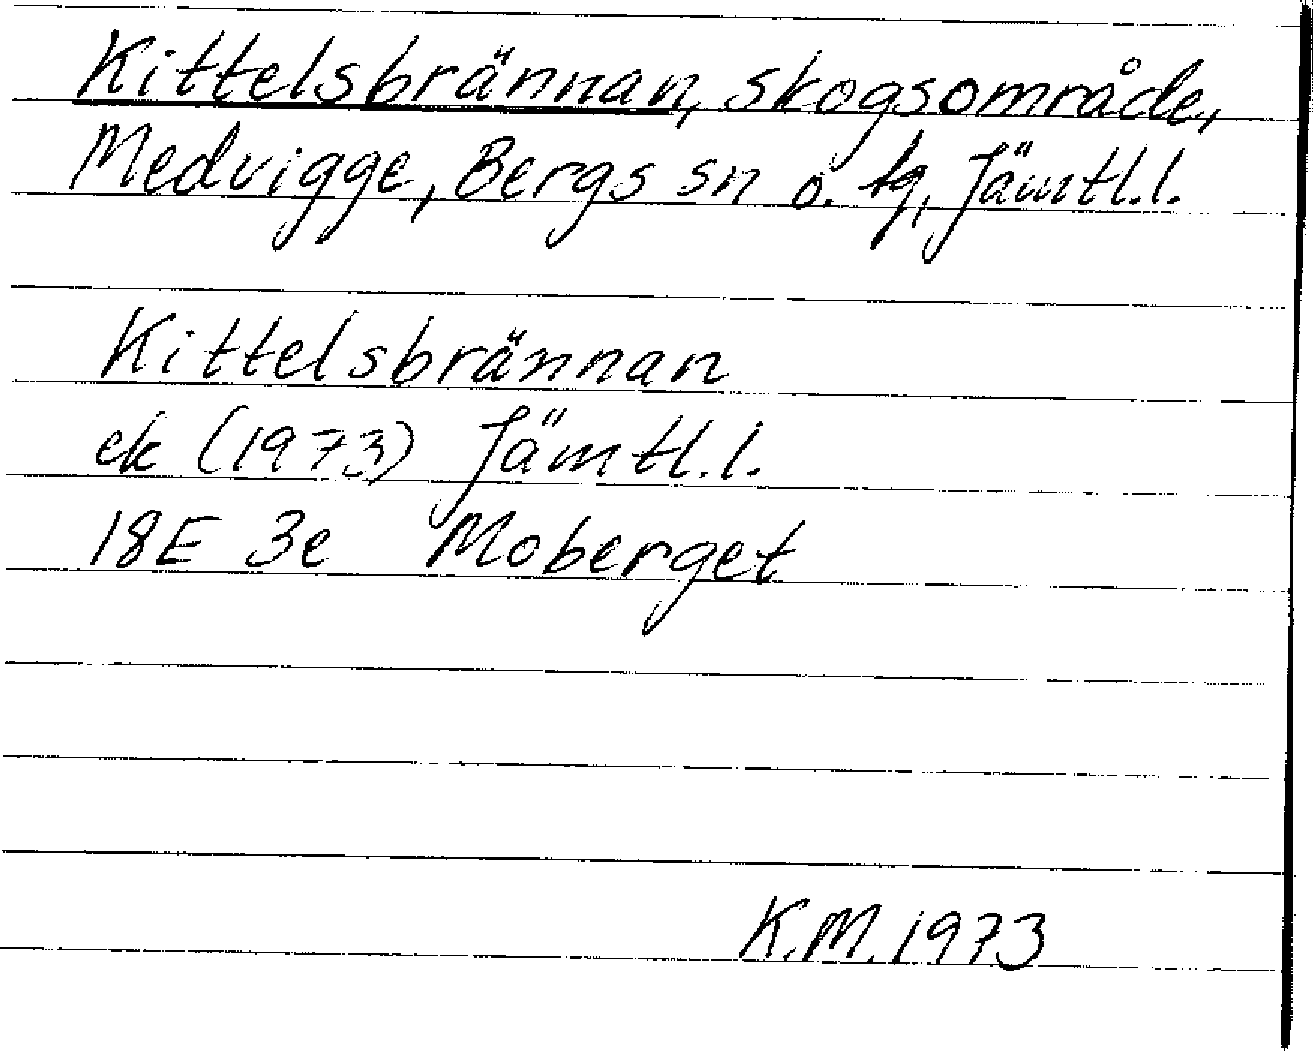 Kittelsbrännan, skogsområde,
Medvigge, Bergs sn o. tg, Jämtl.l.
Kittelsbrännan
ek (1973) Jämtl.l.
18E 3e Moberget
K.M. 1973